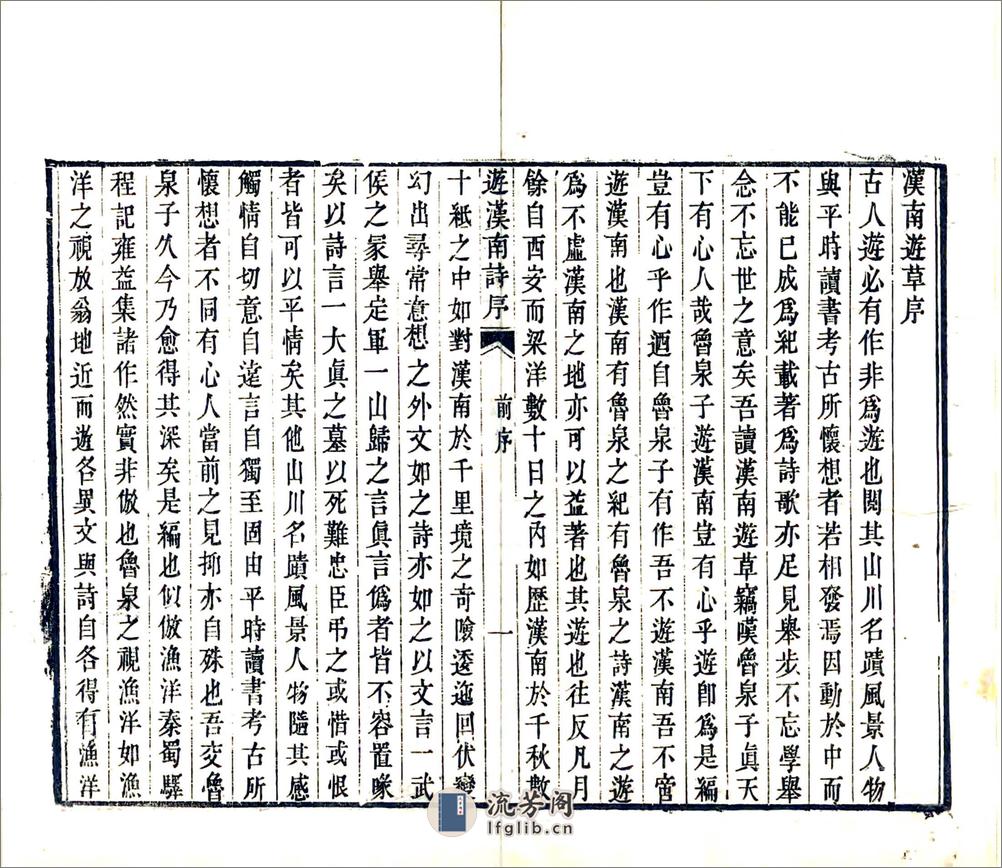 漢南遊草序
古人遊必有作非爲遊也閱其山川名蹟風景人物
與平時讀書考古所懷想者若相發焉因動於中而
不能已成爲紀載著爲詩歌亦足見舉步不忘學舉
念不忘世之意矣吾讀漢南遊草竊嘆魯泉子眞天
下有心人哉魯泉子遊漢南豈有心乎遊卽爲是編
豈有心乎作迺自魯泉子有作吾不遊漢南吾不啻
遊漢南也漢南有魯泉之紀有魯泉之詩漢南之遊
爲不虛漢南之地亦可以益著也其遊也往反凡月
餘自西安而梁洋數十日之內如歷漢南於千秋數
遊漢南詩序
前序
一
十紙之中如對漢南於千里境之奇險逶迤回伏變
幻出尋常意想之外文如之詩亦如之以文言一武
侯之冢舉定軍一山歸之言眞言僞者皆不容置喙
矣以詩言一大眞之墓以死難忠臣弔之或惜或恨
者皆可以平情矣其他山川名蹟風景人物隨其感
觸情自切意自遠言自獨至固由平時讀書考古所
懷想者不同有心人當前之見抑亦自殊也吾交魯
泉子久今乃愈得其深矣是編也似倣漁洋秦蜀驛
程記雍益集諸作然實非倣也魯泉之視漁洋如漁
洋之視放翁地近而遊各異文與詩自各得有漁洋
流芳阁
lfglib.cn